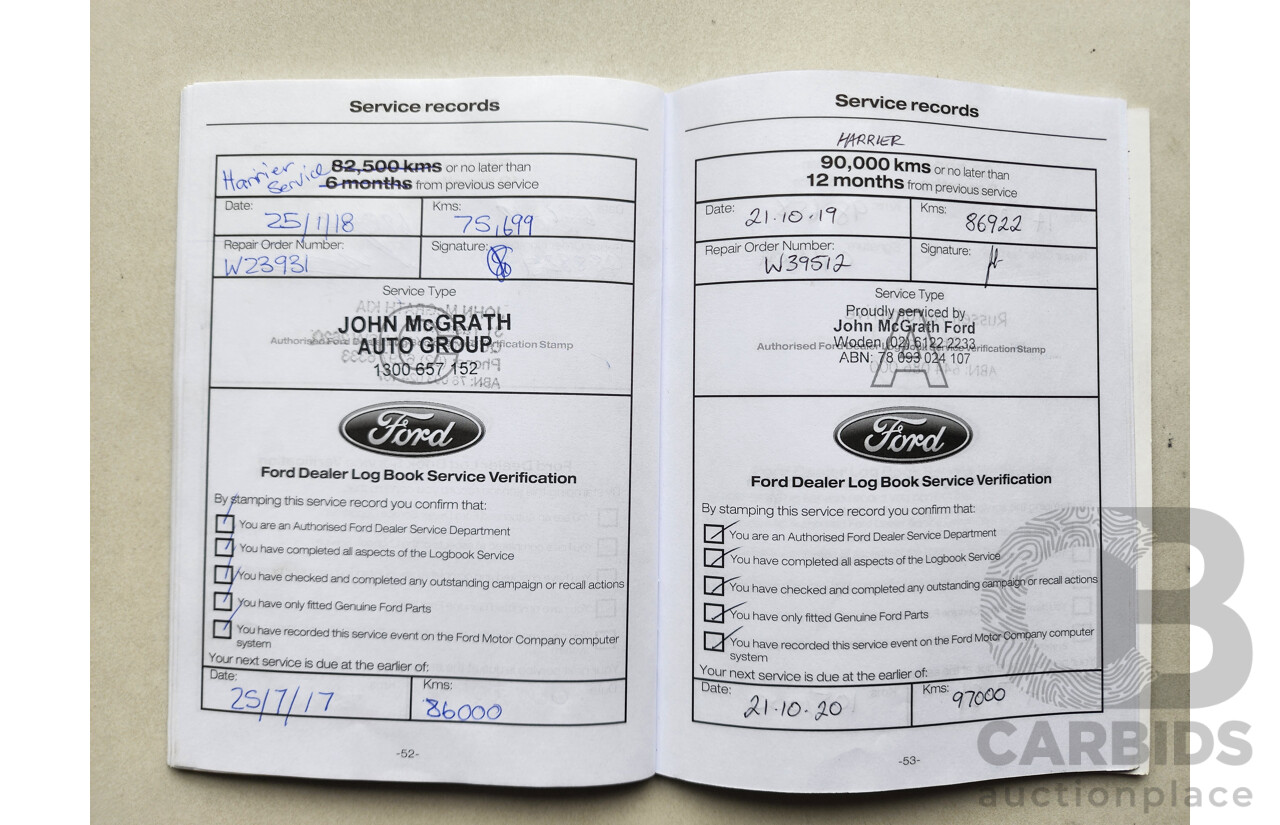 Service records
Harrier
Service
82,500 kms or no later than
6 months from previous service
Date:
25/1/18
Kms:
75,699
Repair Order Number:
W23931
Signature:
Service Type
JOHN McGRATH
AUTO GROUP
Authorised Ford Dealer Logbook Service Verification Stamp
1300 657 152
Ford
Ford Dealer Log Book Service Verification
By stamping this service record you confirm that:
You are an Authorised Ford Dealer Service Department
You have completed all aspects of the Logbook Service
You have checked and completed any outstanding campaign or recall actions
You have only fitted Genuine Ford Parts
You have recorded this service event on the Ford Motor Company computer
system
Your next service is due at the earlier of:
Date:
25/7/17
Kms:
86000
-52-
Service records
HARRIER
90,000 kms or no later than
12 months from previous service
Date:
21.10.19
Kms:
86922
Repair Order Number:
W39512
Signature:
Service Type
Proudly serviced by
John McGrath Ford
Woden (02) 6122 2233
Authorised Ford Dealer Logbook Service Verification Stamp
A
ABN: 78 093 024 107
Ford
Ford Dealer Log Book Service Verification
By stamping this service record you confirm that:
You are an Authorised Ford Dealer Service Department
You have completed all aspects of the Logbook Service
You have checked and completed any outstanding campaign or recall actions
You have only fitted Genuine Ford Parts
You have recorded this service event on the Ford Motor Company computer
system
Your next service is due at the earlier of:
Date:
21.10.20
Kms:
97000
-53-
CB
CARBIDS
auctionplace